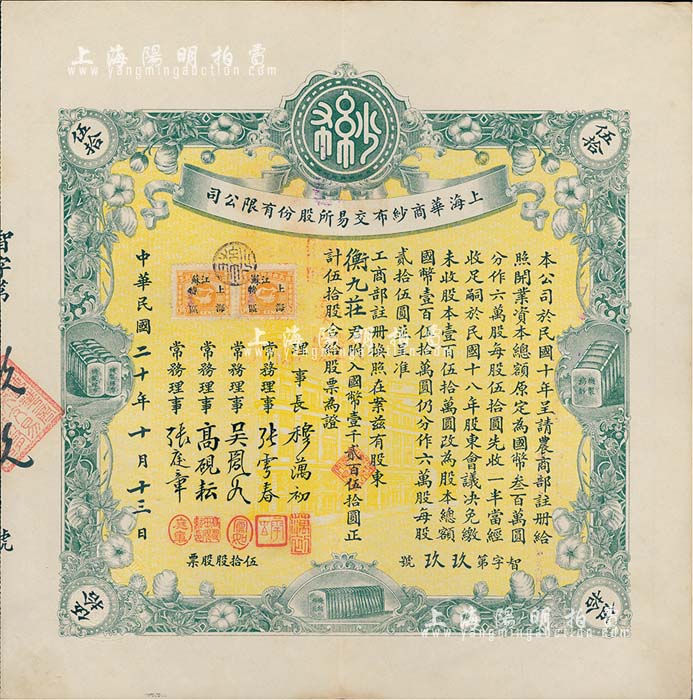 上海陽明拍賣
www.yangmingauction.com
紗
伍拾
伍拾
上海華商紗布交易所股份有限公司
本公司於民國十年呈請農商部註冊給
照開業資本總額原定為國幣叁百萬圓
分作六萬股每股伍拾圓先收一半當經
收足嗣於民國十八年股東會議决免繳
未收股本壹百伍拾萬圓改為股本總額
國幣壹百伍拾萬圓仍分作六萬股每股
貳拾伍圓並呈准
工商部註冊換照在業茲有股東
衡九莊君附入國幣壹千貳百伍拾圓正
計伍拾股合給股票為證
理事長 穆藕初
常務理事
常務理事 吳
常務理事 高硯耘
常務理事 張
中華民國二十年十月十三日
江蘇
上海
特區
江蘇
上海
特區
智字第玖玖號
伍拾股股票
伍拾
伍拾
智字第玖玖號
上海陽明拍賣
www.yangmingauction.com